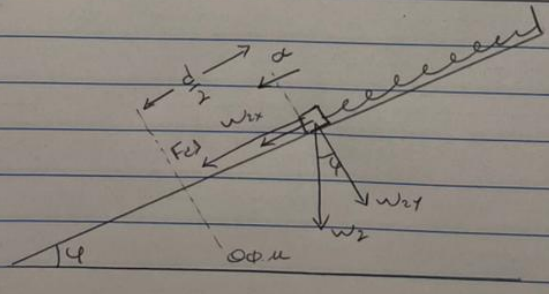 d/2
α
W2x
Fελ
φ
W2y
W2
φ
ΘΦΜ